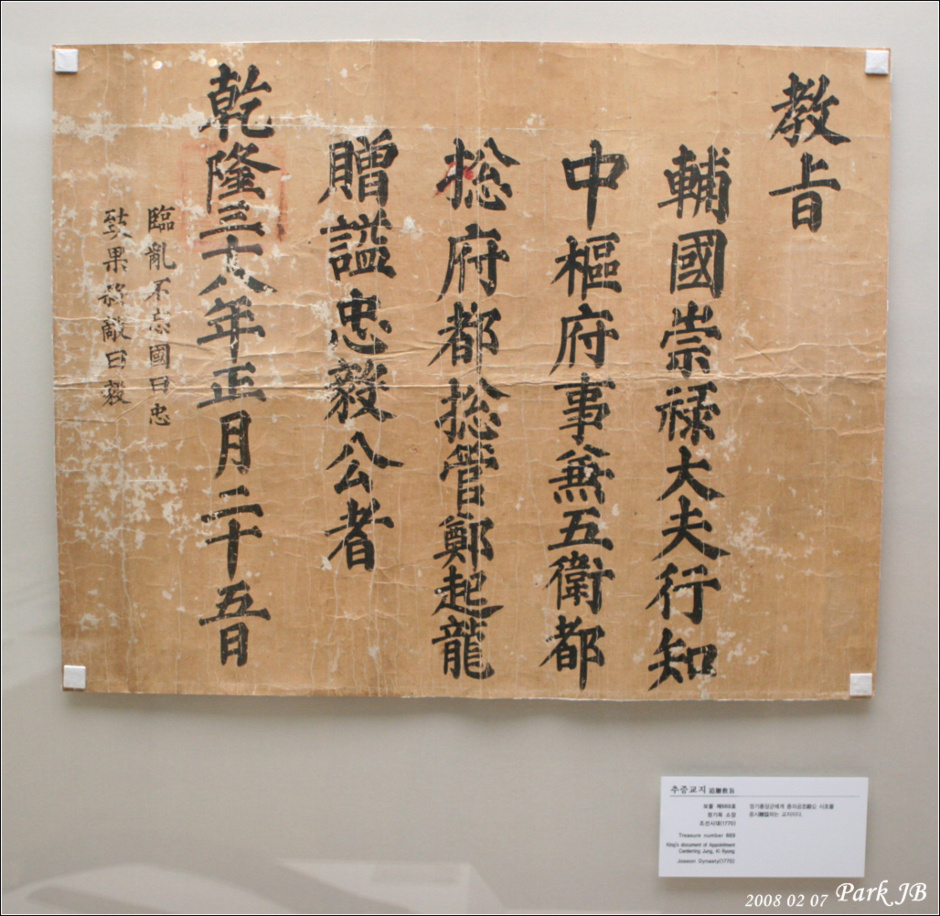 教旨
輔國崇禄大夫行知
中樞府事兼五衛都
捴府都捴管鄭起龍
贈諡忠毅公者
乾隆三十八年正月二十五日
臨亂不忘國曰忠
致果殺敵曰毅
추증교지
보물 제669호
조선시대(1770)
시호를
증시贈諡하는 교지이다.
Treasure number 669
King's document of Appointment
Jung, Ki Ryong
Joseon Dynasty(1770)
2008 02 07 Park JB